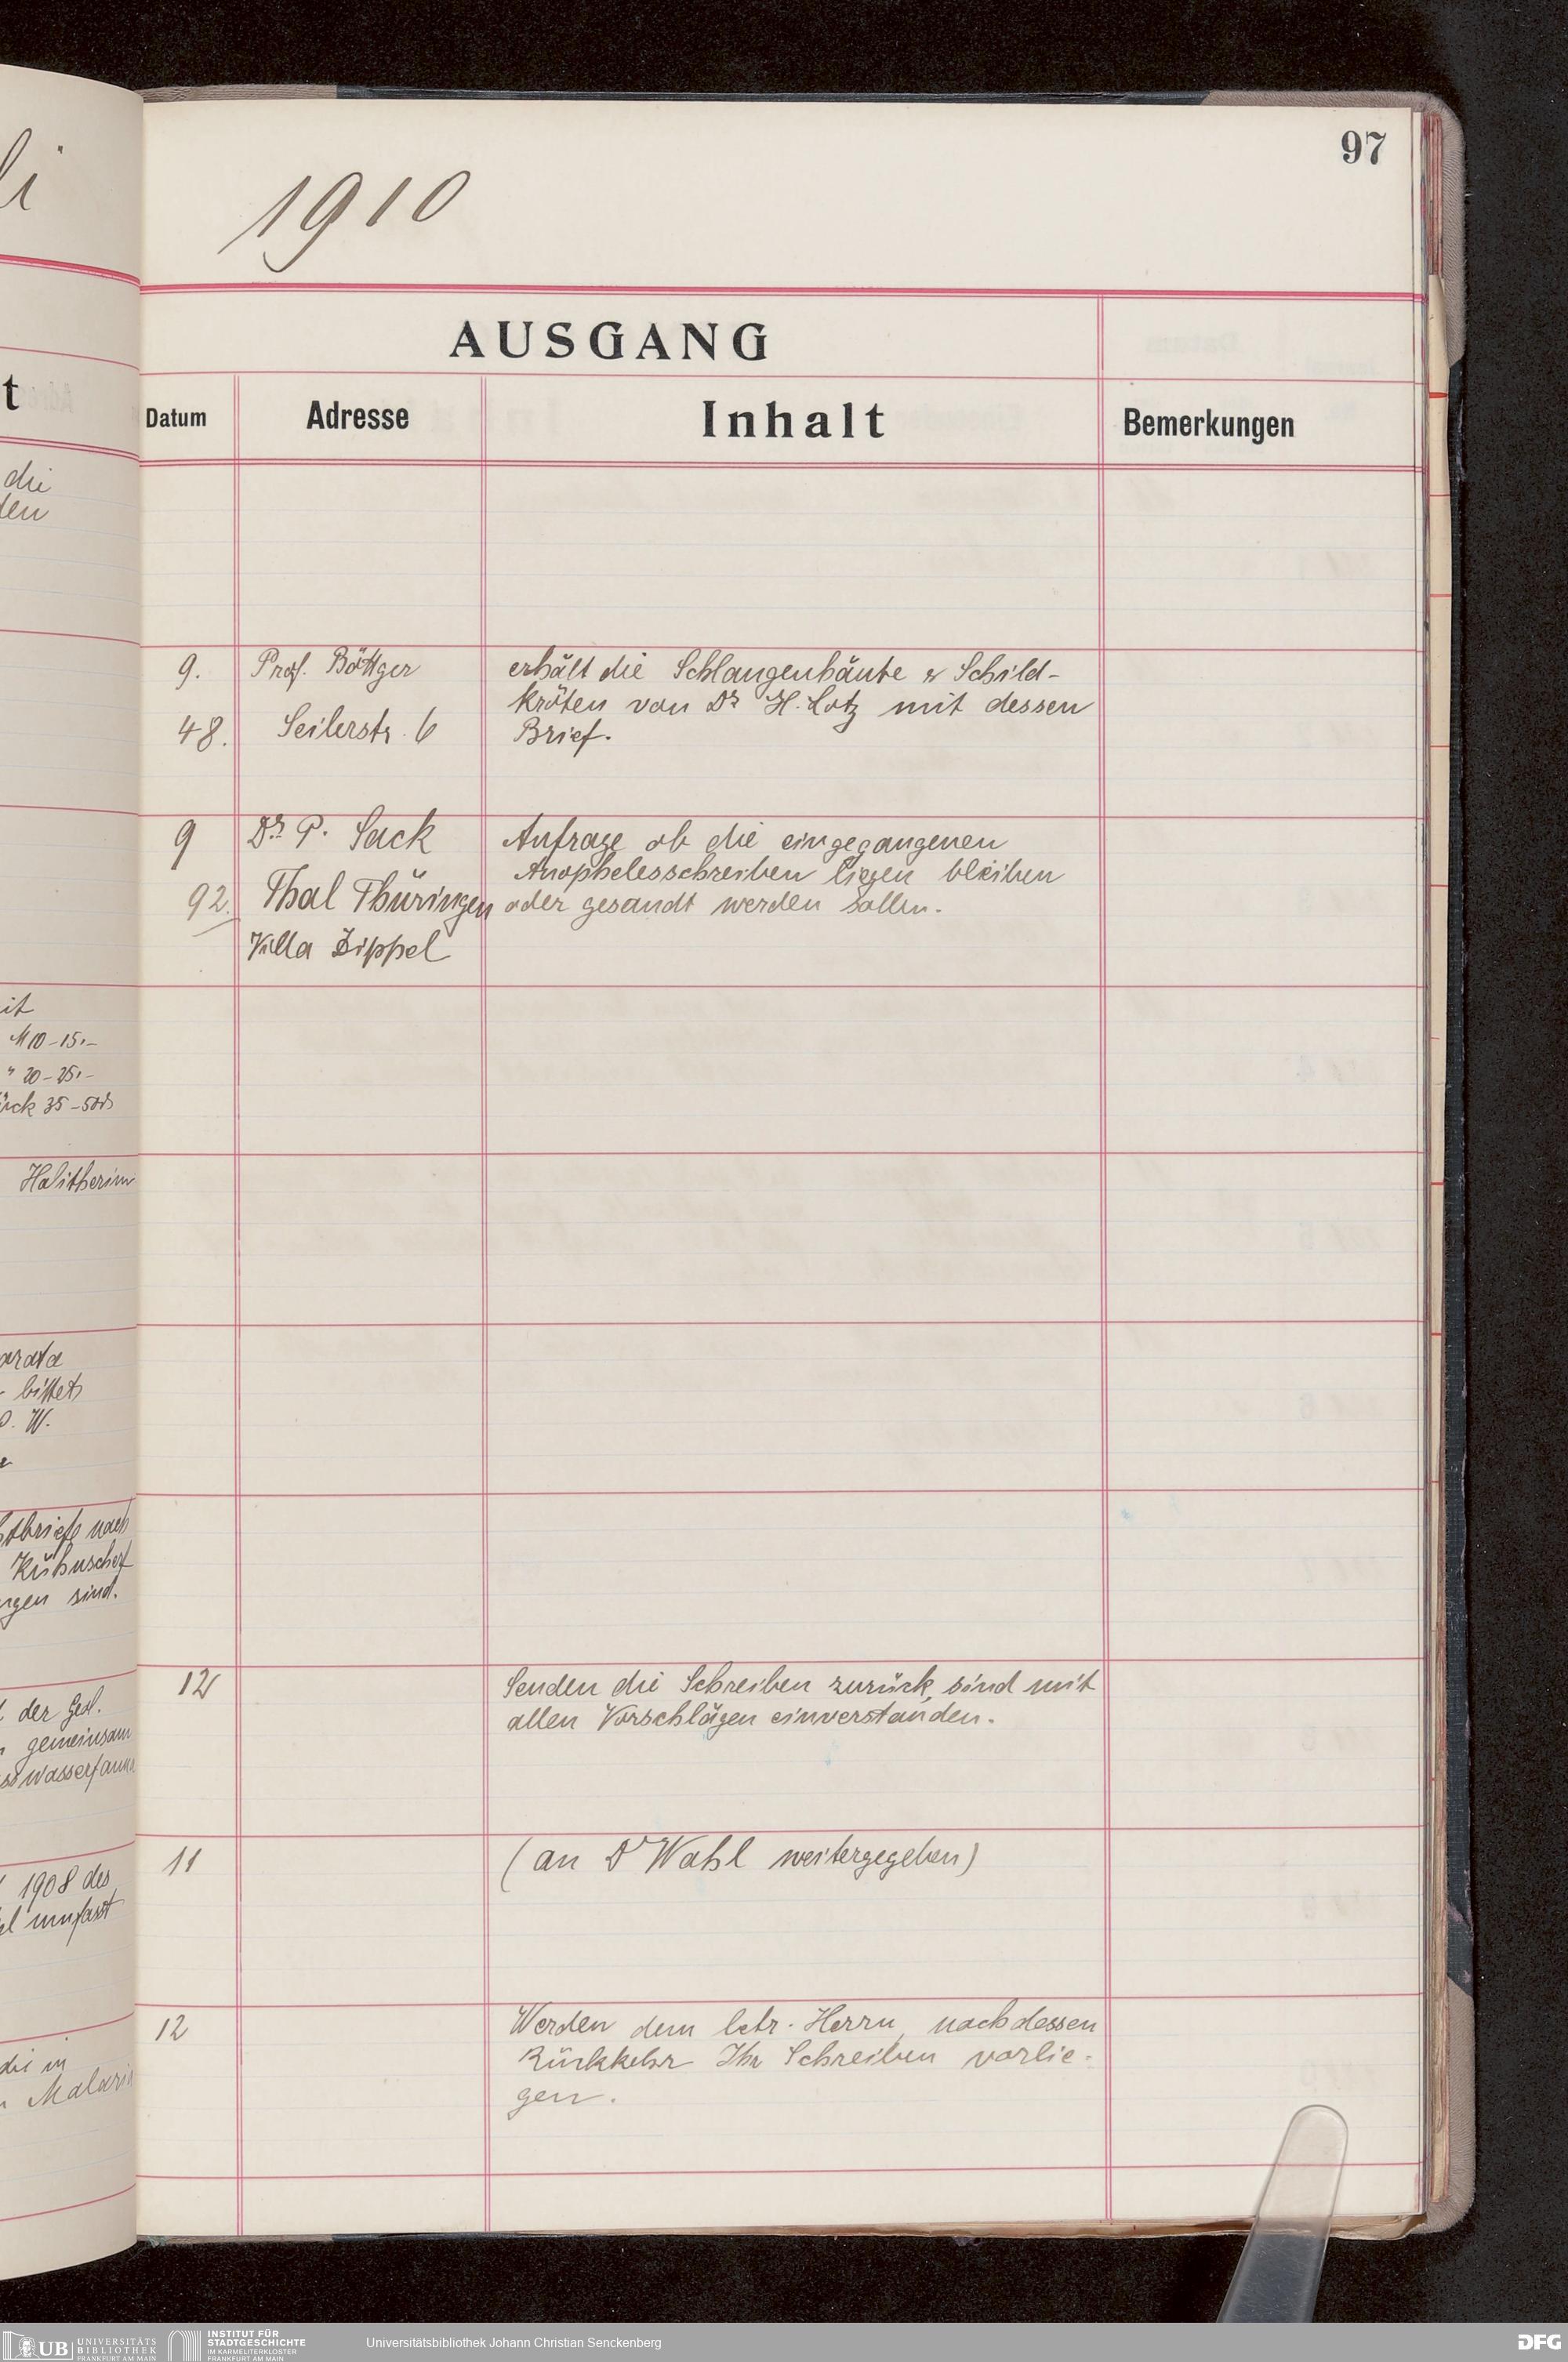 97
1910
AUSGANG
Datum
Adresse
Inhalt
Bemerkungen
9. Prof. Böttger erhält die Schlangenhäute & Schild-
kröten von Dr H. Lotz mit dessen
48. Seilerstr. 6 Brief.
9 Dr. P. Sack Anfrage ob die eingegangenen
Anophelesschreiben liegen bleiben
92. Thal Thüringen oder gesandt werden sollen.
Villa Zippel
12 Senden die Schreiben zurück, sind mit
allen Vorschlägen einverstanden.
11 (an Dr Wahl weitergegeben)
12 Werden dem betr. Herrn, nach dessen
Rückkehr Ihr Schreiben vorlie-
gen.
die
den
it
M 10-15.-
" 20-25.-
ück 35-50
Halitherium
arata
bittet
O. W.
stbriefe nach
Kühnscherf
ngen sind.
der Gesl.
gemeinsam
sswasserfauna
1908 des
el umfasst
die in
Malaria
UB UNIVERSITÄTS
BIBLIOTHEK
FRANKFURT AM MAIN
INSTITUT FÜR
STADTGESCHICHTE
IM KARMELITERKLOSTER
FRANKFURT AM MAIN
Universitätsbibliothek Johann Christian Senckenberg
DFG